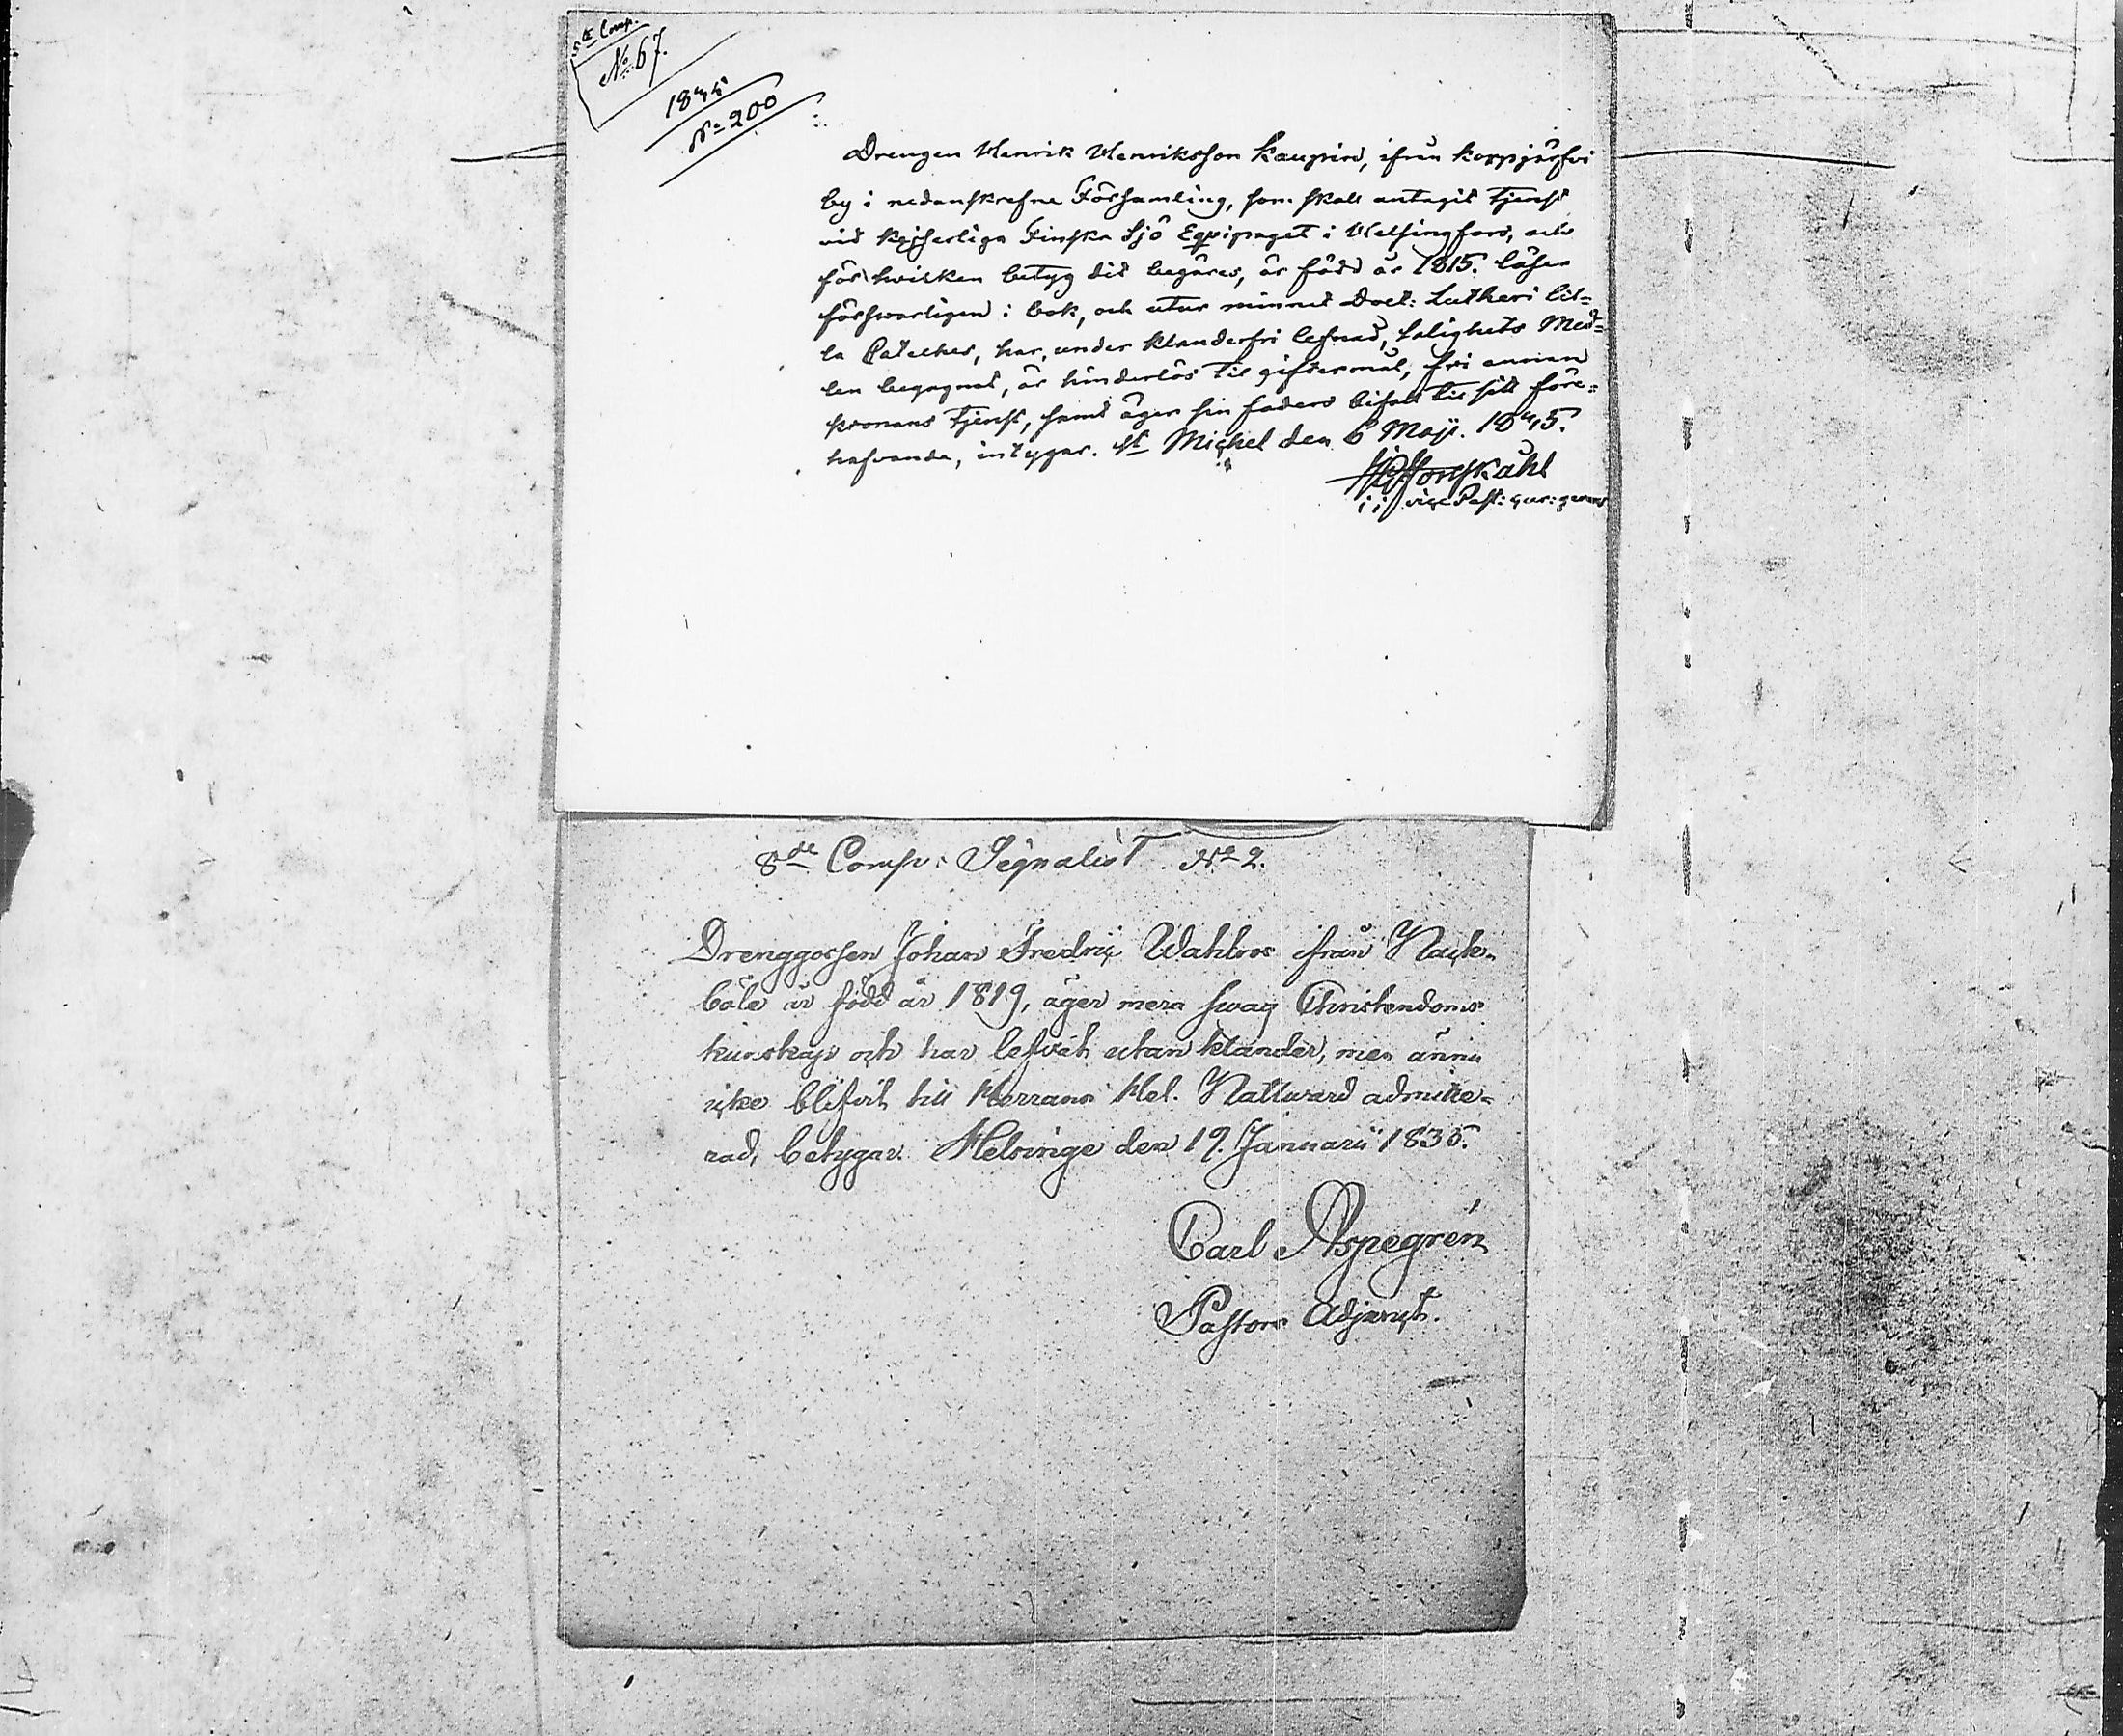 5te Comp.
No 67.
1845
No 200
Drengen Henrik Henriksson Kaupin, ifrån Koppjärfvi
by i nedanskrefne Församling, som skall antagit tjenst
vid Kejserliga Finska Sjö Eqvipaget i Helsingfors, och
för hwilken betyg dit begäres, är född år 1815. läser
förswarligen i bok, och utur minnet Doct: Lutheri lil=
la Cateches, har, under klanderfri lefnad, salighets Med=
len begagnat, är hinderlös til giftermål, fri annan
kronans tjenst, samt äger sin faders bifall til sitt före=
hafvande, intygar. St Michel den 6 Maji. 1845.
Forsskåhl
vice Past:
8de Comp: Segnalist No 2.
Drenggossen Johan Fredric Wahlroos ifrån Nack-
böle är född år 1819, äger mera swag Christendoms
kunskap och har lefvat utan klander, men ännu
icke blifvit till Herrans Hel. Nattward admitte=
rad, betygar. Helsinge den 19. Januarii 1835.
Carl Aspegrén
Pastors Adjunct.